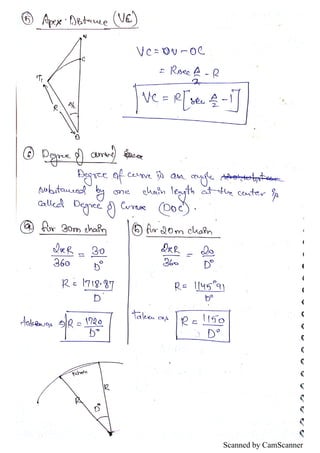 (h) Apex Distance (VC)
V
C
T₁
R
Δ/2
O
VC = OV - OC
= R sec Δ/2 - R
VC = R [sec Δ/2 - 1]
Degree of curve
Degree of curve is an angle
substained by one chain length at the center is
called Degree of Curve (DOC).
(a) for 30m chain
2πR/360 = 30/D°
R = 1718.87/D
taken as R = 1720/D°
(b) for 20m chain
2πR/360 = 20/D°
R = 1145.91/D°
Taken as R = 1150/D°
R
R
D°
Scanned by CamScanner